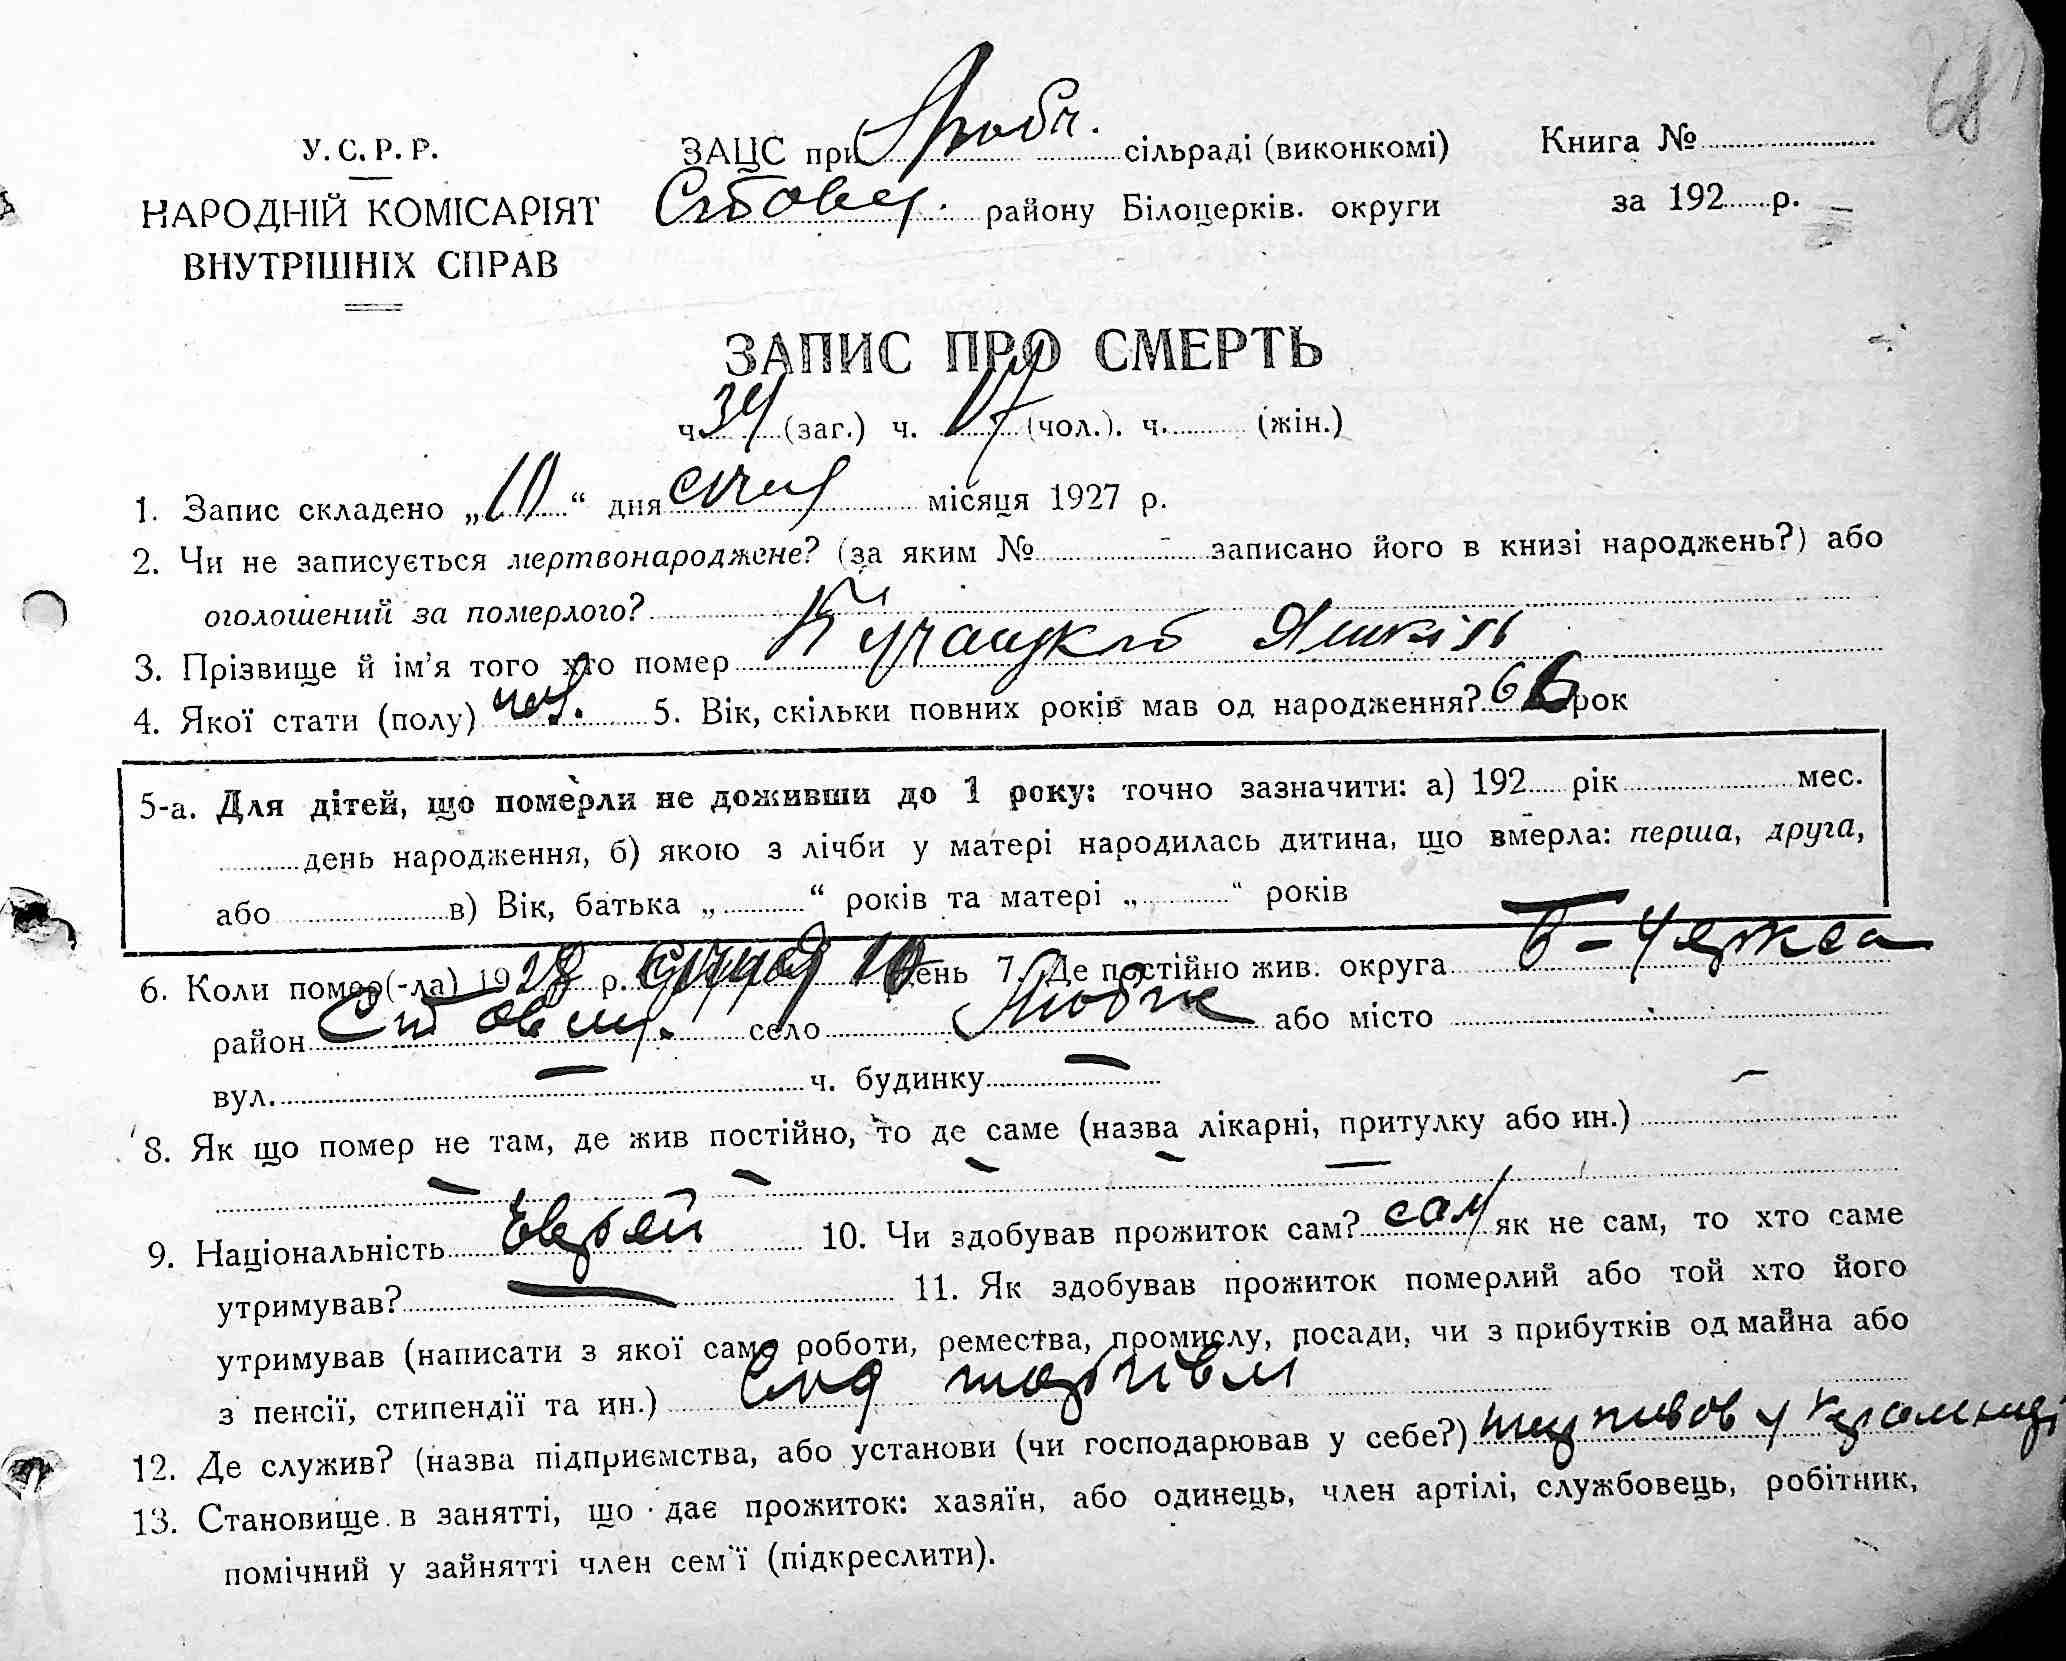 681
У. С. Р. Р.
НАРОДНІЙ КОМІСАРІЯТ
ВНУТРІШНІХ СПРАВ
ЗАЦС при сільраді (виконкомі)
району Білоцерків. округи
Книга №
за 192 р.
ЗАПИС ПРО СМЕРТЬ
ч. 34 (заг.) ч. 17 (чол.). ч. (жін.)
1. Запис складено „10“ дня січня місяця 1927 р.
2. Чи не записується мертвонароджене? (за яким № - записано його в книзі народжень?) або
оголошений за померлого?
3. Прізвище й ім’я того хто помер
4. Якої стати (полу) чол. 5. Вік, скільки повних років мав од народження? 66 рок
5-а. Для дітей, що померли не доживши до 1 року: точно зазначити: а) 192 рік мес.
день народження, б) якою з лічби у матері народилась дитина, що вмерла: перша, друга,
або в) Вік, батька „ “ років та матері „ “ років
6. Коли помер(-ла) 1928 р. січня 10 день 7. Де постійно жив. округа Б-Церква
район село або місто
вул. — ч. будинку —
8. Як що помер не там, де жив постійно, то де саме (назва лікарні, притулку або ин.) —
— — — — —
9. Національність Еврей 10. Чи здобував прожиток сам? сам як не сам, то хто саме
утримував? — 11. Як здобував прожиток померлий або той хто його
утримував (написати з якої саме роботи, ремества, промислу, посади, чи з прибутків од майна або
з пенсії, стипендії та ин.) торгівлі
12. Де служив? (назва підприємства, або установи (чи господарював у себе?) у крамниці
13. Становище в занятті, що дає прожиток: хазяїн, або одинець, член артілі, службовець, робітник,
помічний у зайнятті член сем’ї (підкреслити).